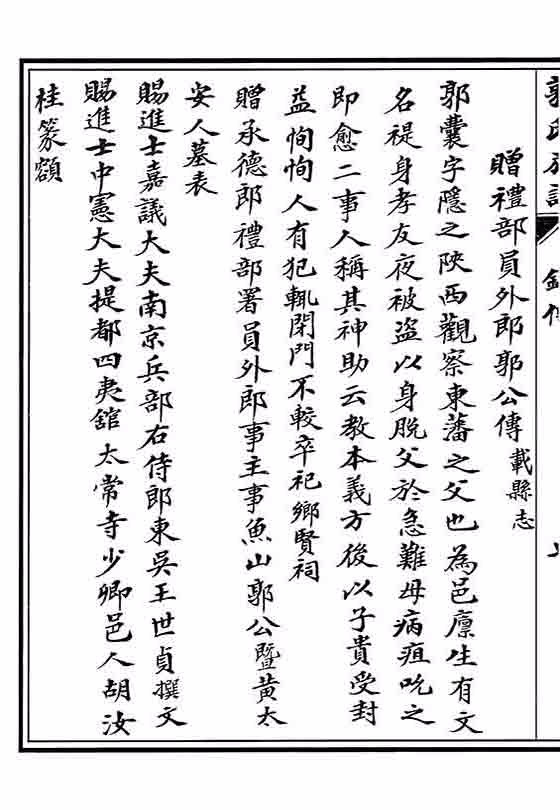 贈禮部員外郎郭公傳載縣志
郭囊字隱之陝西觀察東藩之父也為邑廪生有文
名禔身孝友夜被盜以身脫父於急難母病疽吮之
即愈二事人稱其神助云教本義方後以子貴受封
益恂恂人有犯輒閉門不較卒祀鄉賢祠
贈承德郎禮部署員外郎事主事魚山郭公暨黃太
安人墓表
賜進士嘉議大夫南京兵部右侍郎東吳王世貞撰文
賜進士中憲大夫提都四夷舘太常寺少卿邑人胡汝
桂篆額